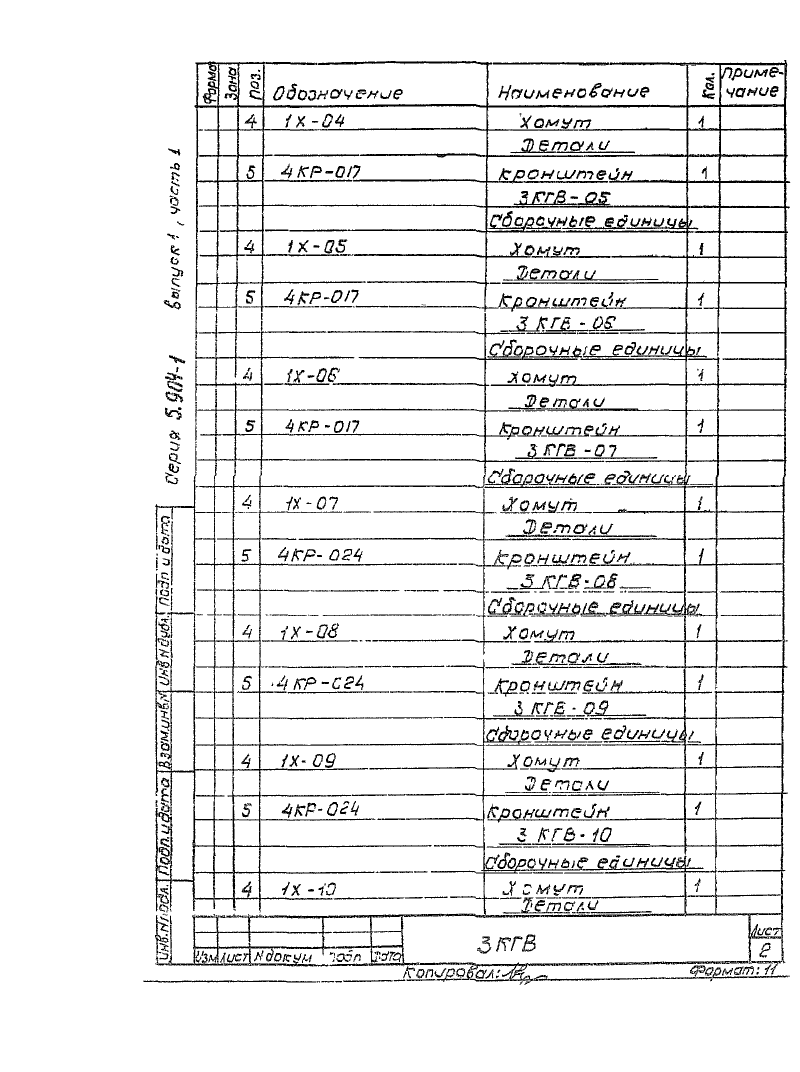 Серия 5.904-1 выпуск 1, часть 1
Формат Зона Поз. Обозначение Наименование Кол. Приме-
чание
4 1Х-04 Хомут 1
Детали
5 4КР-017 Кронштейн 1
3КГВ-05
Сборочные единицы
4 1Х-05 Хомут 1
Детали
5 4КР-017 Кронштейн 1
3 КГВ-06
Сборочные единицы
4 1Х-06 Хомут 1
Детали
5 4КР-017 Кронштейн 1
3 КГВ-07
Сборочные единицы
4 1Х-07 Хомут 1
Детали
5 4КР-024 Кронштейн 1
3 КГВ-08
Сборочные единицы
4 1Х-08 Хомут 1
Детали
5 4КР-024 Кронштейн 1
3 КГВ-09
Сборочные единицы
4 1Х-09 Хомут 1
Детали
5 4КР-024 Кронштейн 1
3 КГВ-10
Сборочные единицы
4 1Х-10 Хомут 1
Детали
Инв.N подл. Подп. и дата Взам.инв.N Инв.N дубл. Подп и дата
Изм Лист N докум Подп Дата
3 КГВ
Лист
2
Копировал:
Формат: 11